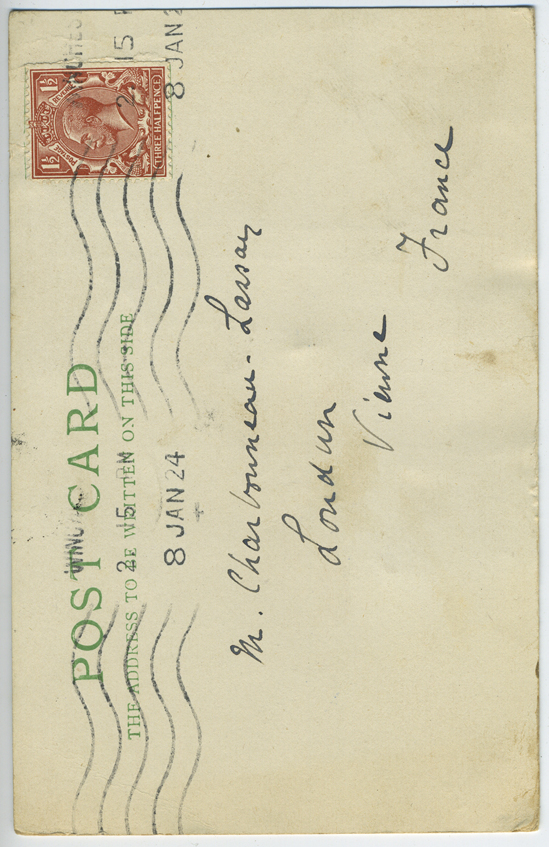 POST CARD
THE ADDRESS TO BE WRITTEN ON THIS SIDE
2 15 PM
8 JAN 24
2 15
8 JAN 2
POSTAGE
REVENUE
1½
1½
THREE HALFPENCE
M. Charbonneau-Lassay
Loudun
Vienne
France